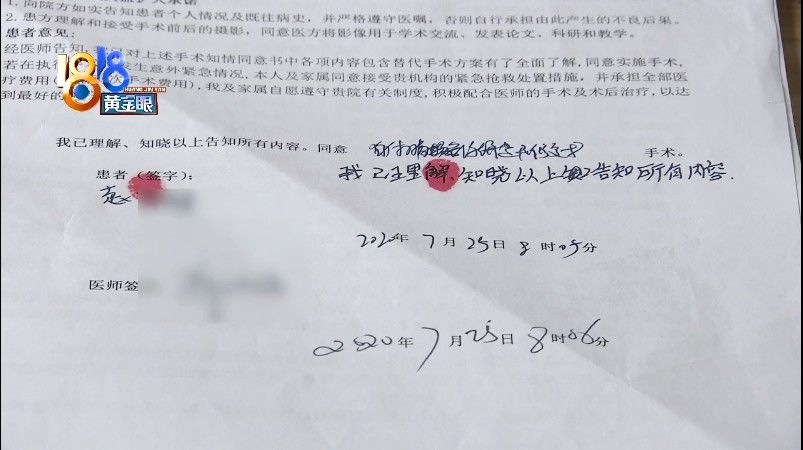 1. 向院方如实告知患者个人情况及既往病史，并严格遵守医嘱，否则自行承担由此产生的不良后果。
2. 患方理解和接受手术前后的摄影，同意医方将影像用于学术交流、发表论文、科研和教学。
患者意见：
经医师告知，我已对上述手术知情同意书中各项内容包含替代手术方案有了全面了解，同意实施手术，
若在执行 发生意外紧急情况，本人及家属同意接受贵机构的紧急抢救处置措施，并承担全部医
疗费用 手术费用），我及家属自愿遵守贵院有关制度，积极配合医师的手术及术后治疗，以达
到最好的
1818
黄金眼
我已理解、知晓以上告知所有内容。同意 手术。
患者（签字）：
我已理解、知晓以上 告知所有内容.
2020年7月25日8时05分
医师签
2020年7月25日8时06分